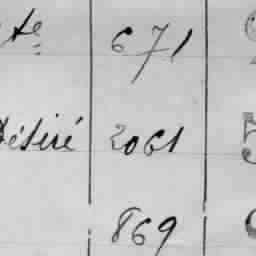 te 671
Désiré 2061
869